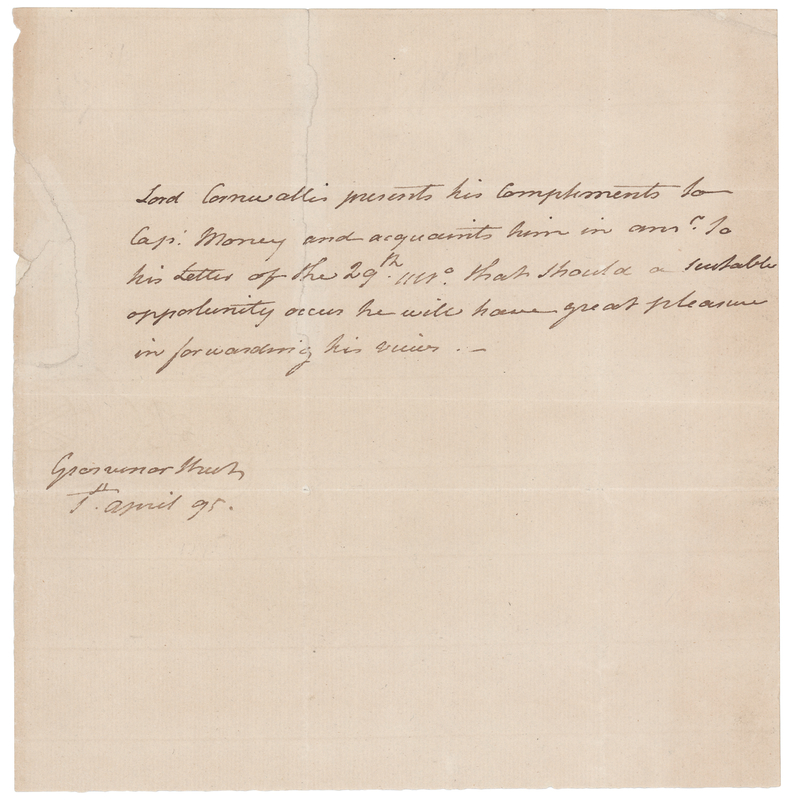 Lord Cornwallis presents his Compliments to
Capt. Money and acquaints him in ansr. to
his Letter of the 29th. ulto. that should a suitable
opportunity occur he will have great pleasure
in forwarding his views. —
Grosvenor Street
1st. april 95.